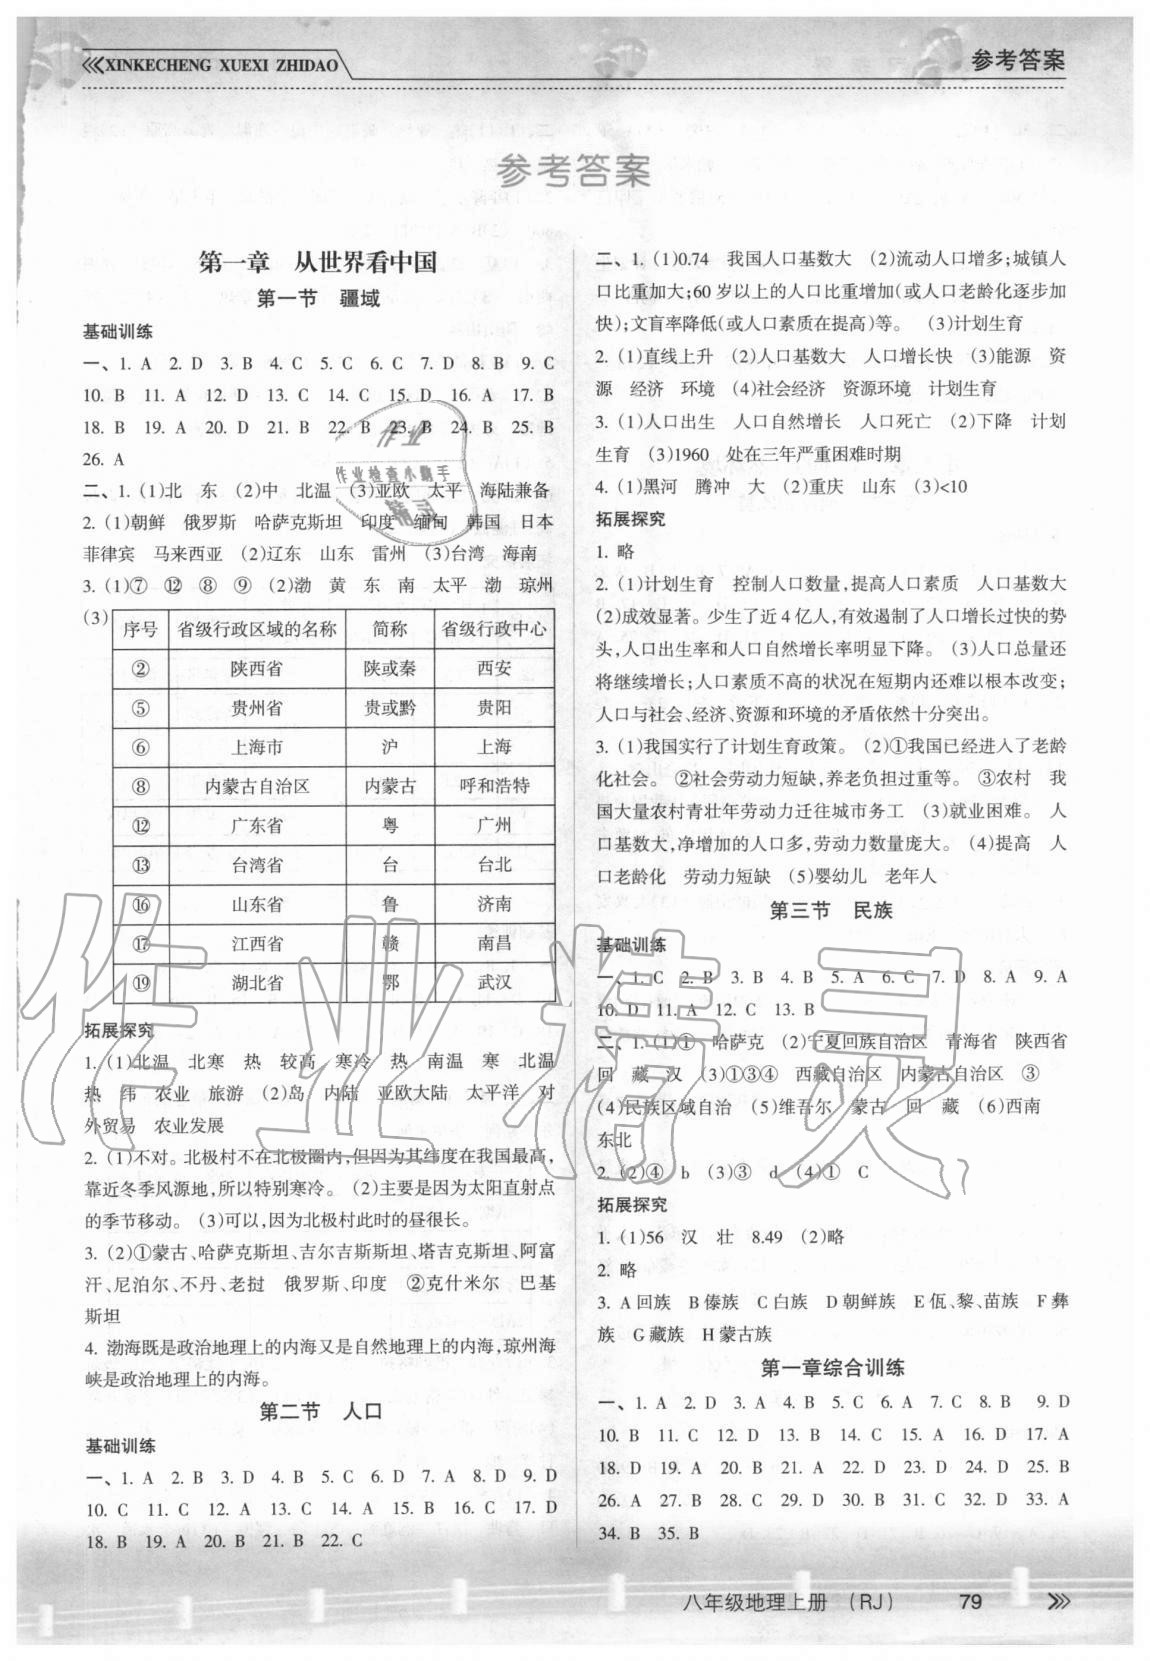 XINKECHENG XUEXI ZHIDAO
参考答案
参考答案
第一章　从世界看中国
第一节　疆域
基础训练
一、1. A 2. D 3. B 4. C 5. C 6. C 7. D 8. B 9. C
10. B 11. A 12. D 13. C 14. C 15. D 16. A 17. B
18. B 19. A 20. D 21. B 22. B 23. B 24. B 25. B
26. A
二、1. (1)北　东 (2)中　北温 (3)亚欧　太平　海陆兼备
2. (1)朝鲜　俄罗斯　哈萨克斯坦　印度　缅甸　韩国　日本
菲律宾　马来西亚 (2)辽东　山东　雷州 (3)台湾　海南
3. (1)⑦　⑫　⑧　⑨ (2)渤　黄　东　南　太平　渤　琼州
(3)
序号 省级行政区域的名称 简称 省级行政中心
② 陕西省 陕或秦 西安
⑤ 贵州省 贵或黔 贵阳
⑥ 上海市 沪 上海
⑧ 内蒙古自治区 内蒙古 呼和浩特
⑫ 广东省 粤 广州
⑬ 台湾省 台 台北
⑯ 山东省 鲁 济南
⑰ 江西省 赣 南昌
⑲ 湖北省 鄂 武汉
拓展探究
1. (1)北温　北寒　热　较高　寒冷　热　南温　寒　北温
热　纬　农业　旅游 (2)岛　内陆　亚欧大陆　太平洋　对
外贸易　农业发展
2. (1)不对。北极村不在北极圈内,但因为其纬度在我国最高,
靠近冬季风源地,所以特别寒冷。 (2)主要是因为太阳直射点
的季节移动。 (3)可以,因为北极村此时的昼很长。
3. (2)①蒙古、哈萨克斯坦、吉尔吉斯斯坦、塔吉克斯坦、阿富
汗、尼泊尔、不丹、老挝　俄罗斯、印度　②克什米尔　巴基
斯坦
4. 渤海既是政治地理上的内海又是自然地理上的内海,琼州海
峡是政治地理上的内海。
第二节　人口
基础训练
一、1. A 2. B 3. D 4. B 5. B 6. D 7. A 8. D 9. D
10. C 11. C 12. A 13. C 14. A 15. B 16. C 17. D
18. B 19. A 20. B 21. B 22. C
二、1. (1)0.74　我国人口基数大 (2)流动人口增多;城镇人
口比重加大;60岁以上的人口比重增加(或人口老龄化逐步加
快);文盲率降低(或人口素质在提高)等。 (3)计划生育
2. (1)直线上升 (2)人口基数大　人口增长快 (3)能源　资
源　经济　环境 (4)社会经济　资源环境　计划生育
3. (1)人口出生　人口自然增长　人口死亡 (2)下降　计划
生育 (3)1960　处在三年严重困难时期
4. (1)黑河　腾冲　大 (2)重庆　山东 (3)<10
拓展探究
1. 略
2. (1)计划生育　控制人口数量,提高人口素质　人口基数大
(2)成效显著。少生了近4亿人,有效遏制了人口增长过快的势
头,人口出生率和人口自然增长率明显下降。 (3)人口总量还
将继续增长;人口素质不高的状况在短期内还难以根本改变;
人口与社会、经济、资源和环境的矛盾依然十分突出。
3. (1)我国实行了计划生育政策。 (2)①我国已经进入了老龄
化社会。 ②社会劳动力短缺,养老负担过重等。 ③农村　我
国大量农村青壮年劳动力迁往城市务工 (3)就业困难。 人
口基数大,净增加的人口多,劳动力数量庞大。 (4)提高　人
口老龄化　劳动力短缺 (5)婴幼儿　老年人
第三节　民族
基础训练
一、1. C 2. B 3. B 4. B 5. A 6. C 7. D 8. A 9. A
10. D 11. A 12. C 13. B
二、1. (1)①　哈萨克 (2)宁夏回族自治区　青海省　陕西省
回　藏　汉 (3)①③④　西藏自治区　内蒙古自治区　③
(4)民族区域自治 (5)维吾尔　蒙古　回　藏 (6)西南
东北
2. (2)④　b (3)③　d (4)①　C
拓展探究
1. (1)56　汉　壮　8.49 (2)略
2. 略
3. A回族　B傣族　C白族　D朝鲜族　E佤、黎、苗族　F彝
族　G藏族　H蒙古族
第一章综合训练
一、1. A 2. D 3. A 4. B 5. C 6. A 7. C 8. B 9. D
10. B 11. C 12. D 13. B 14. C 15. A 16. D 17. A
18. D 19. A 20. B 21. A 22. D 23. D 24. D 25. B
26. A 27. B 28. C 29. D 30. B 31. C 32. D 33. A
34. B 35. B
八年级地理上册 （RJ） 79
作业
作业检查小帮手
精灵
作业精灵